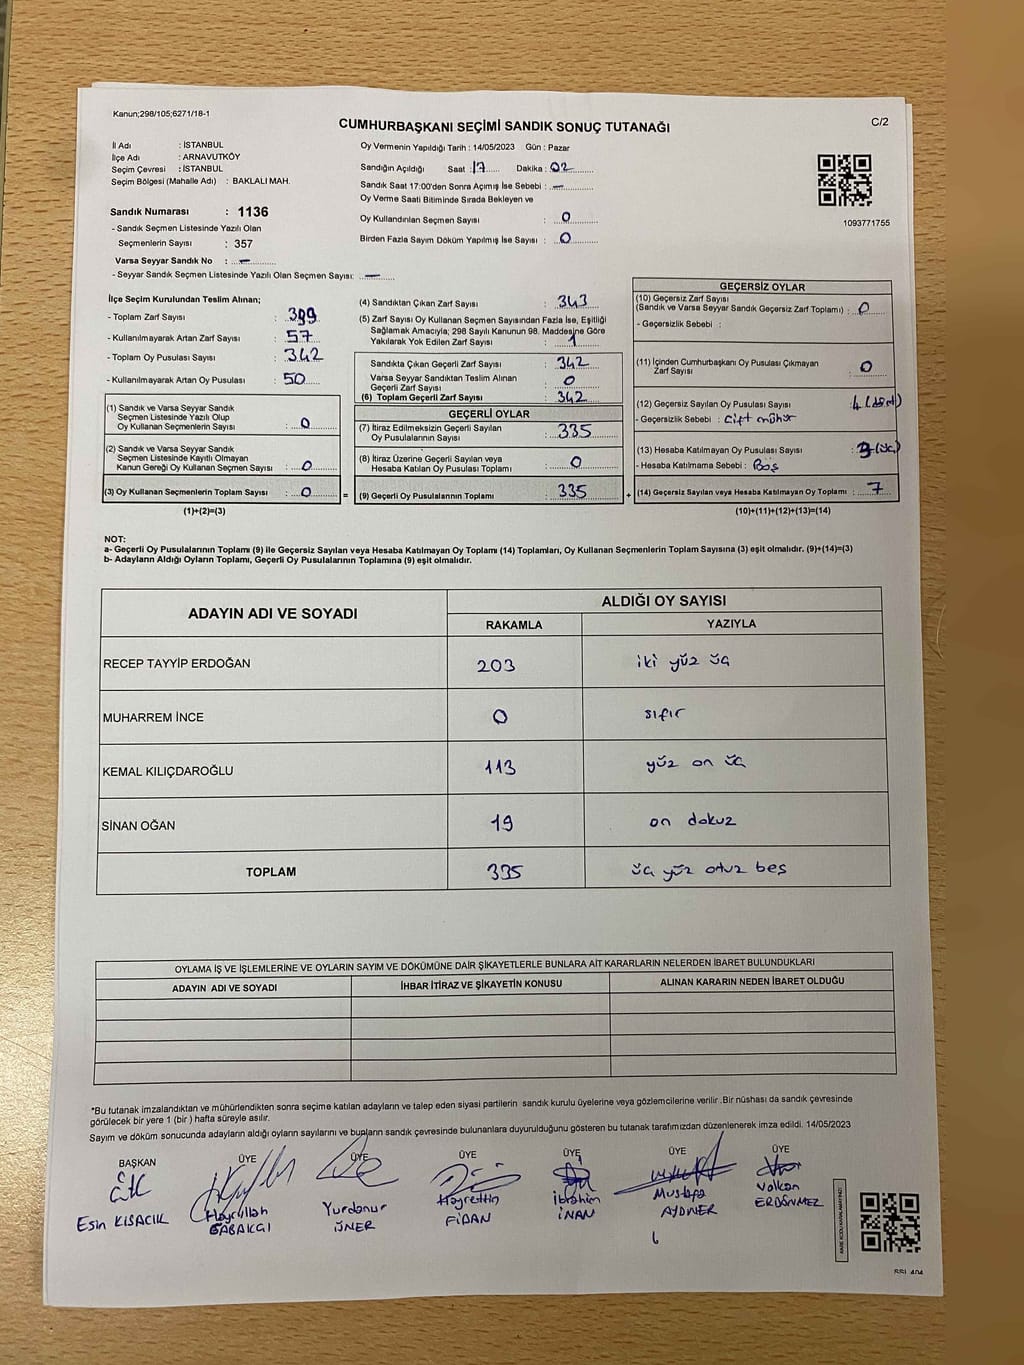 Kanun;298/105;6271/18-1
CUMHURBAŞKANI SEÇİMİ SANDIK SONUÇ TUTANAĞI
C/2
İl Adı : İSTANBUL
İlçe Adı : ARNAVUTKÖY
Seçim Çevresi : İSTANBUL
Seçim Bölgesi (Mahalle Adı) : BAKLALI MAH.
Sandık Numarası : 1136
- Sandık Seçmen Listesinde Yazılı Olan
Seçmenlerin Sayısı : 357
Varsa Seyyar Sandık No : —
- Seyyar Sandık Seçmen Listesinde Yazılı Olan Seçmen Sayısı: —
Oy Vermenin Yapıldığı Tarih : 14/05/2023 Gün : Pazar
Sandığın Açıldığı Saat : 17 Dakika : 02
Sandık Saat 17:00'den Sonra Açımış İse Sebebi : —
Oy Verme Saati Bitiminde Sırada Bekleyen ve
Oy Kullandırılan Seçmen Sayısı : 0
Birden Fazla Sayım Döküm Yapılmış İse Sayısı : 0
1093771755
İlçe Seçim Kurulundan Teslim Alınan;
- Toplam Zarf Sayısı : 399
- Kullanılmayarak Artan Zarf Sayısı : 57
- Toplam Oy Pusulası Sayısı : 342
- Kullanılmayarak Artan Oy Pusulası : 50
(1) Sandık ve Varsa Seyyar Sandık
Seçmen Listesinde Yazılı Olup
Oy Kullanan Seçmenlerin Sayısı : 0
(2) Sandık ve Varsa Seyyar Sandık
Seçmen Listesinde Kayıtlı Olmayan
Kanun Gereği Oy Kullanan Seçmen Sayısı : 0
(3) Oy Kullanan Seçmenlerin Toplam Sayısı : 0 =
(1)+(2)=(3)
(4) Sandıktan Çıkan Zarf Sayısı : 343
(5) Zarf Sayısı Oy Kullanan Seçmen Sayısından Fazla İse, Eşitliği
Sağlamak Amacıyla; 298 Sayılı Kanunun 98. Maddesine Göre
Yakılarak Yok Edilen Zarf Sayısı : 1
Sandıkta Çıkan Geçerli Zarf Sayısı : 342
Varsa Seyyar Sandıktan Teslim Alınan
Geçerli Zarf Sayısı : 0
(6) Toplam Geçerli Zarf Sayısı : 342
GEÇERLİ OYLAR
(7) İtiraz Edilmeksizin Geçerli Sayılan
Oy Pusulalarının Sayısı : 335
(8) İtiraz Üzerine Geçerli Sayılan veya
Hesaba Katılan Oy Pusulası Toplamı : 0
(9) Geçerli Oy Pusulalarının Toplamı : 335 +
GEÇERSİZ OYLAR
(10) Geçersiz Zarf Sayısı
(Sandık ve Varsa Seyyar Sandık Geçersiz Zarf Toplamı) : 0
- Geçersizlik Sebebi :
(11) İçinden Cumhurbaşkanı Oy Pusulası Çıkmayan
Zarf Sayısı : 0
(12) Geçersiz Sayılan Oy Pusulası Sayısı : 4 (dört)
- Geçersizlik Sebebi : Çift mühür
(13) Hesaba Katılmayan Oy Pusulası Sayısı : 3 (üç)
- Hesaba Katılmama Sebebi : Boş
(14) Geçersiz Sayılan veya Hesaba Katılmayan Oy Toplamı : 7
(10)+(11)+(12)+(13)=(14)
NOT:
a- Geçerli Oy Pusulalarının Toplamı (9) ile Geçersiz Sayılan veya Hesaba Katılmayan Oy Toplamı (14) Toplamları, Oy Kullanan Seçmenlerin Toplam Sayısına (3) eşit olmalıdır. (9)+(14)=(3)
b- Adayların Aldığı Oyların Toplamı, Geçerli Oy Pusulalarının Toplamına (9) eşit olmalıdır.
ADAYIN ADI VE SOYADI
ALDIĞI OY SAYISI
RAKAMLA YAZIYLA
RECEP TAYYİP ERDOĞAN 203 iki yüz üç
MUHARREM İNCE 0 sıfır
KEMAL KILIÇDAROĞLU 113 yüz on üç
SİNAN OĞAN 19 on dokuz
TOPLAM 335 üç yüz otuz beş
OYLAMA İŞ VE İŞLEMLERİNE VE OYLARIN SAYIM VE DÖKÜMÜNE DAİR ŞİKAYETLERLE BUNLARA AİT KARARLARIN NELERDEN İBARET BULUNDUKLARI
ADAYIN ADI VE SOYADI İHBAR İTİRAZ VE ŞİKAYETİN KONUSU ALINAN KARARIN NEDEN İBARET OLDUĞU
*Bu tutanak imzalandıktan ve mühürlendikten sonra seçime katılan adayların ve talep eden siyasi partilerin sandık kurulu üyelerine veya gözlemcilerine verilir .Bir nüshası da sandık çevresinde
görülecek bir yere 1 (bir ) hafta süreyle asılır.
Sayım ve döküm sonucunda adayların aldığı oyların sayılarını ve bunların sandık çevresinde bulunanlara duyurulduğunu gösteren bu tutanak tarafımızdan düzenlenerek imza edildi. 14/05/2023
BAŞKAN ÜYE ÜYE ÜYE ÜYE ÜYE ÜYE
Esin KISACIK
Hayrullah
Yurdanur ÜNER
Hayrettin FİDAN
İbrahim İNAN
Mustafa AYDINER
Volkan ERDÖNMEZ